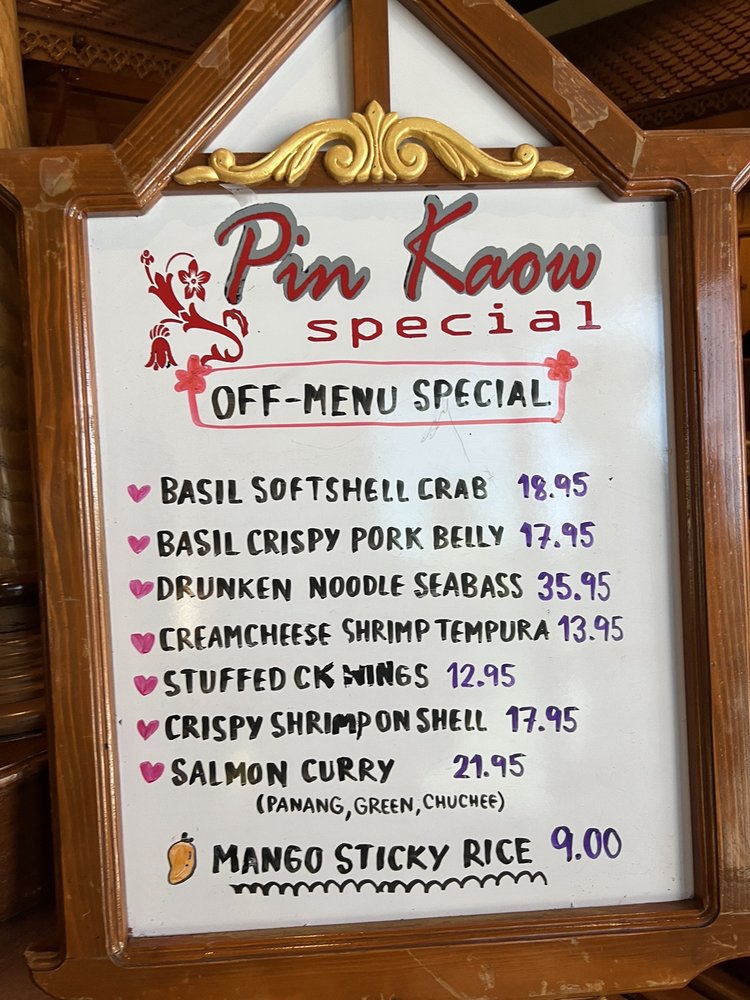 Pin Kaow
special
OFF-MENU SPECIAL
BASIL SOFTSHELL CRAB 18.95
BASIL CRISPY PORK BELLY 17.95
DRUNKEN NOODLE SEABASS 35.95
CREAMCHEESE SHRIMP TEMPURA 13.95
STUFFED CK WINGS 12.95
CRISPY SHRIMP ON SHELL 17.95
SALMON CURRY 21.95
(PANANG, GREEN, CHUCHEE)
MANGO STICKY RICE 9.00